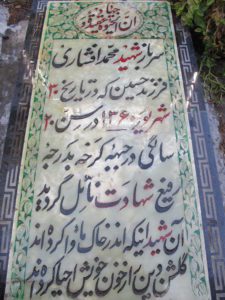 سرباز شهید محمد افشاری
فرزند حسین که در تاریخ ۲۰
شهریور ۱۳۶۰ در سن ۲۰
سالگی در جبهه کرخه بدرجه
رفیع شهادت نائل گردید
آن شهید اینکه اندر خاک وا کرده اند
گلشن دین را ز خون خویش احیا کرده اند